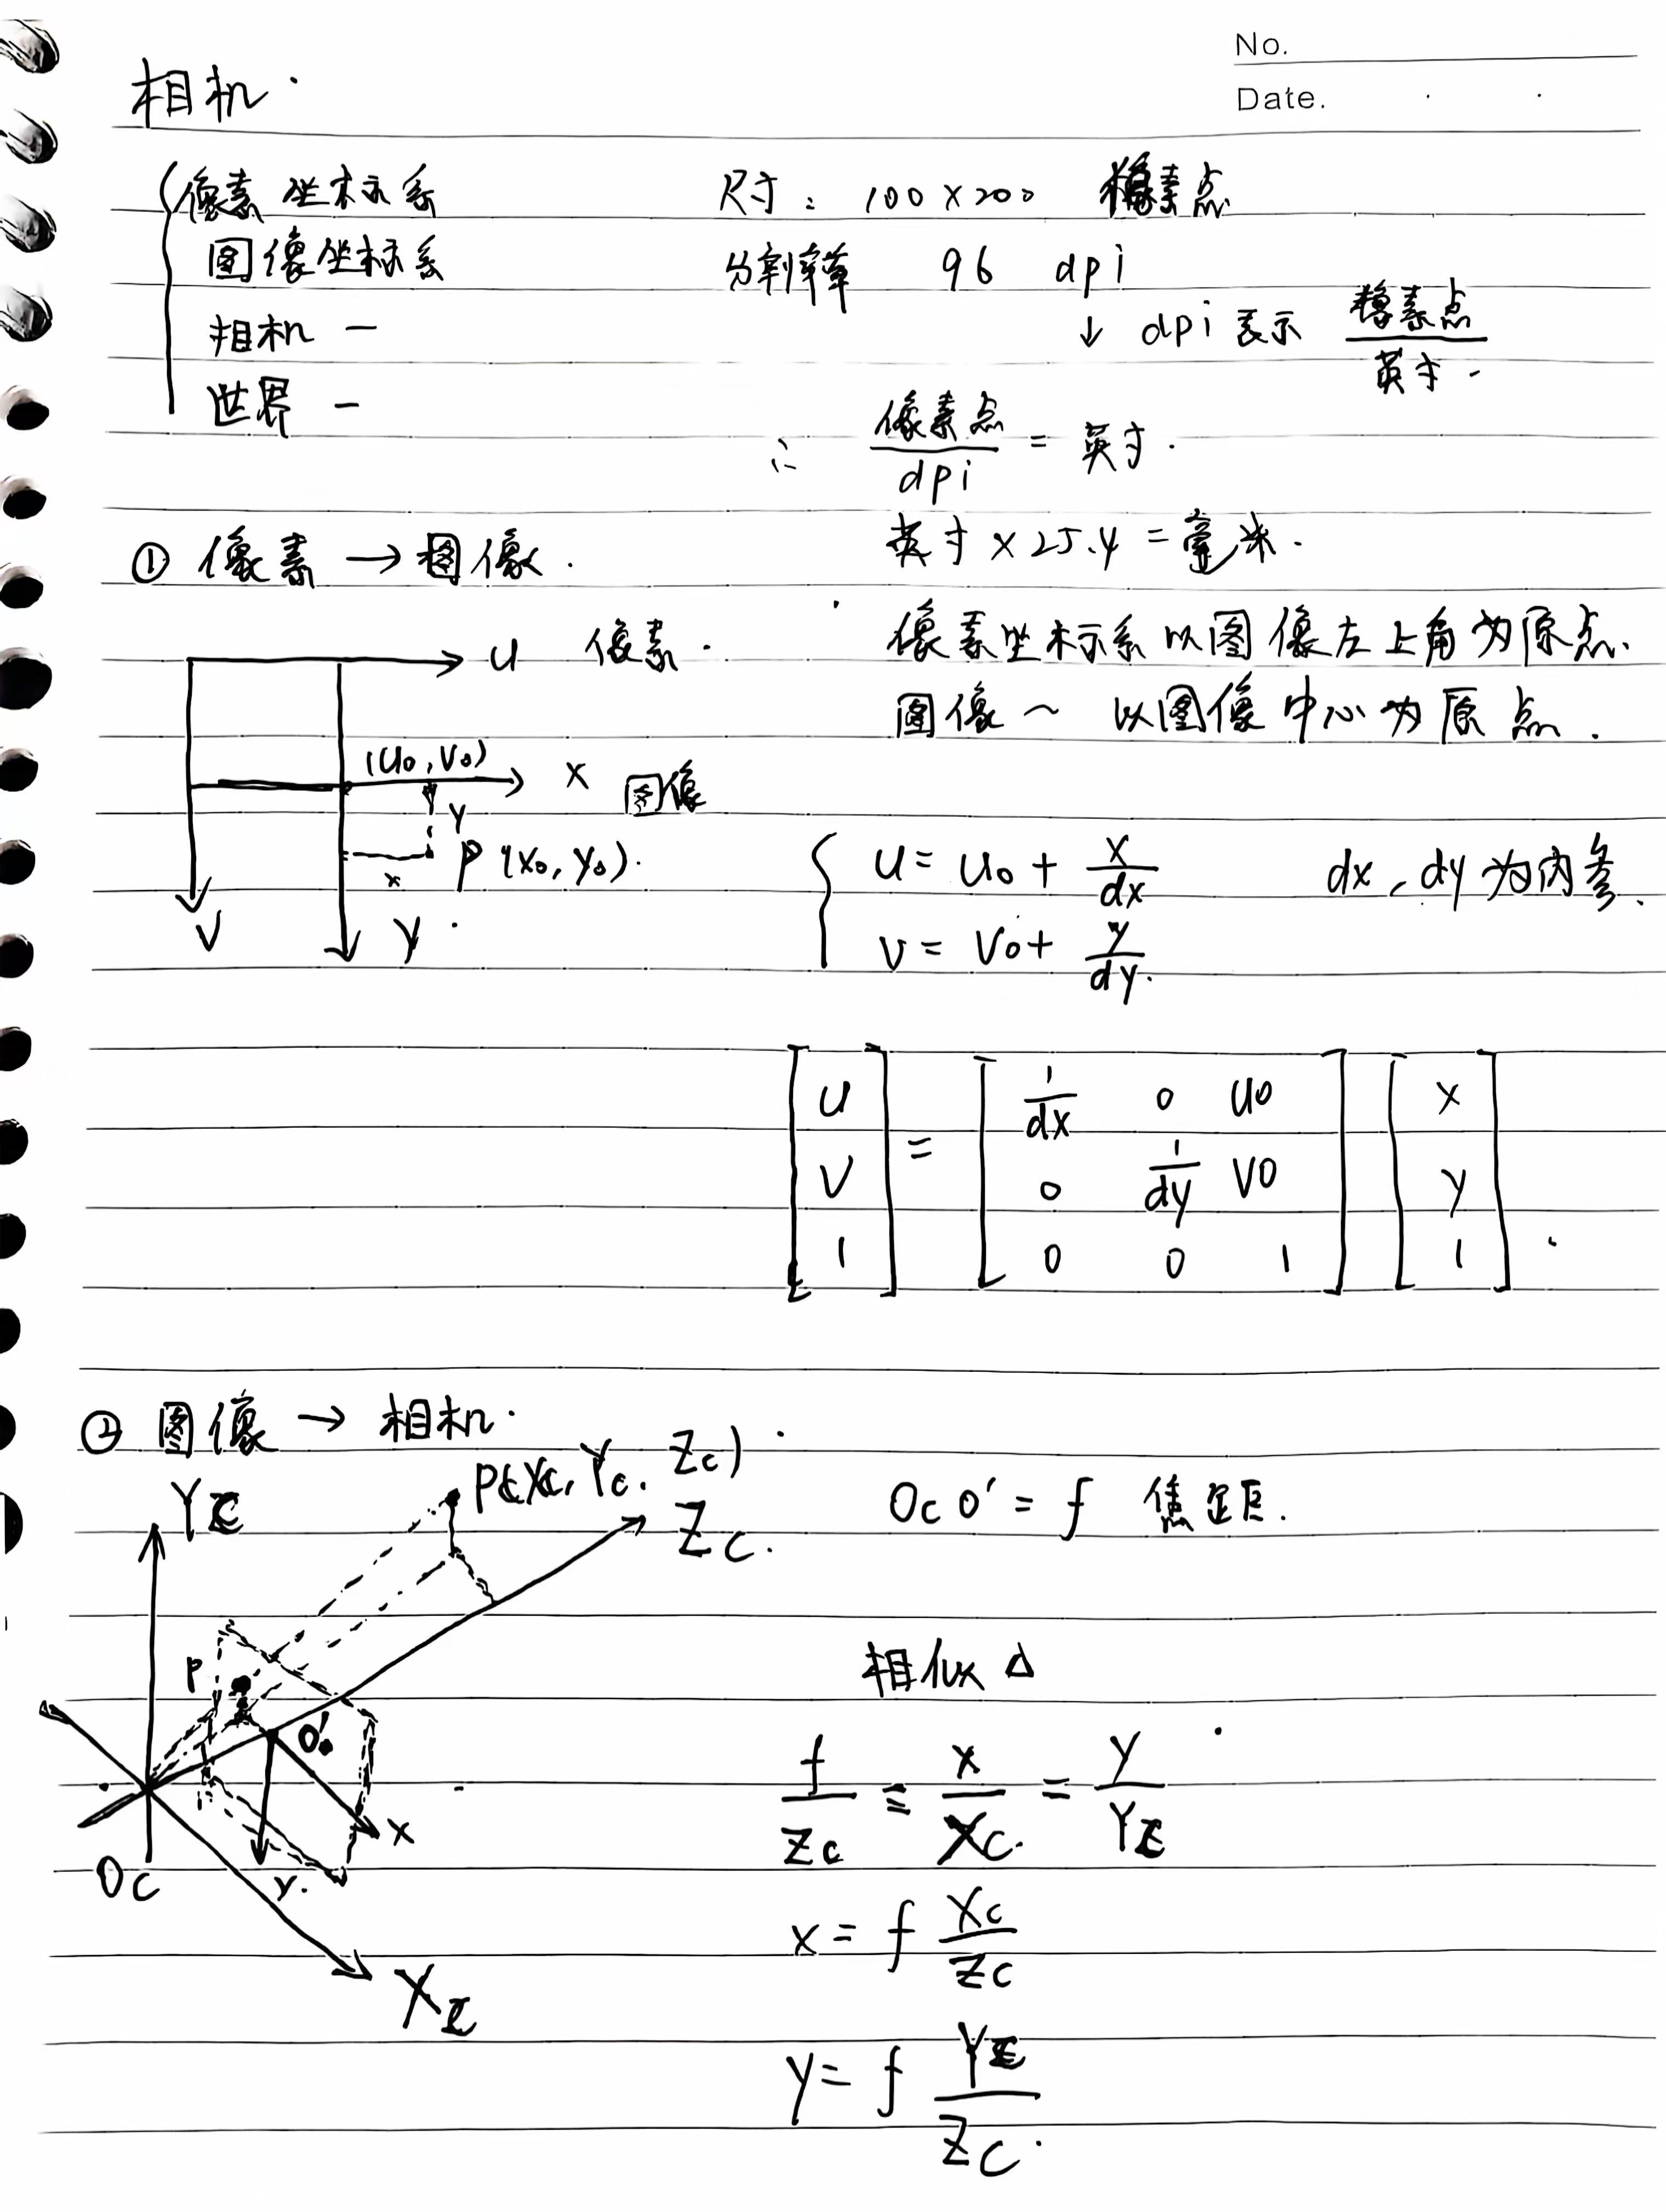 No.
Date.
相机.
像素坐标系
图像坐标系
相机 —
世界 —
尺寸: 100×200 像素点
分割率 96 dpi
↓ dpi 表示 像素点/英寸.
∴ 像素点/dpi = 英寸.
英寸 × 25.4 = 毫米.
① 像素 → 图像.
u 像素.
(u0, v0)
x 图像
y
x
P (x0, y0).
v
y.
像素坐标系以图像左上角为原点.
图像~ 以图像中心为原点.
u = u0 + x/dx
v = v0 + y/dy.
dx, dy 为内参.
[u v 1] = [1/dx 0 u0; 0 1/dy v0; 0 0 1] [x y 1].
② 图像 → 相机.
Yc
P(Xc, Yc. Zc)
Zc.
P
O'
x
y.
Oc
Xc
OcO' = f 焦距.
相似 Δ
f/Zc = x/Xc. = y/Yc
x = f Xc/Zc
y = f Yc/Zc.